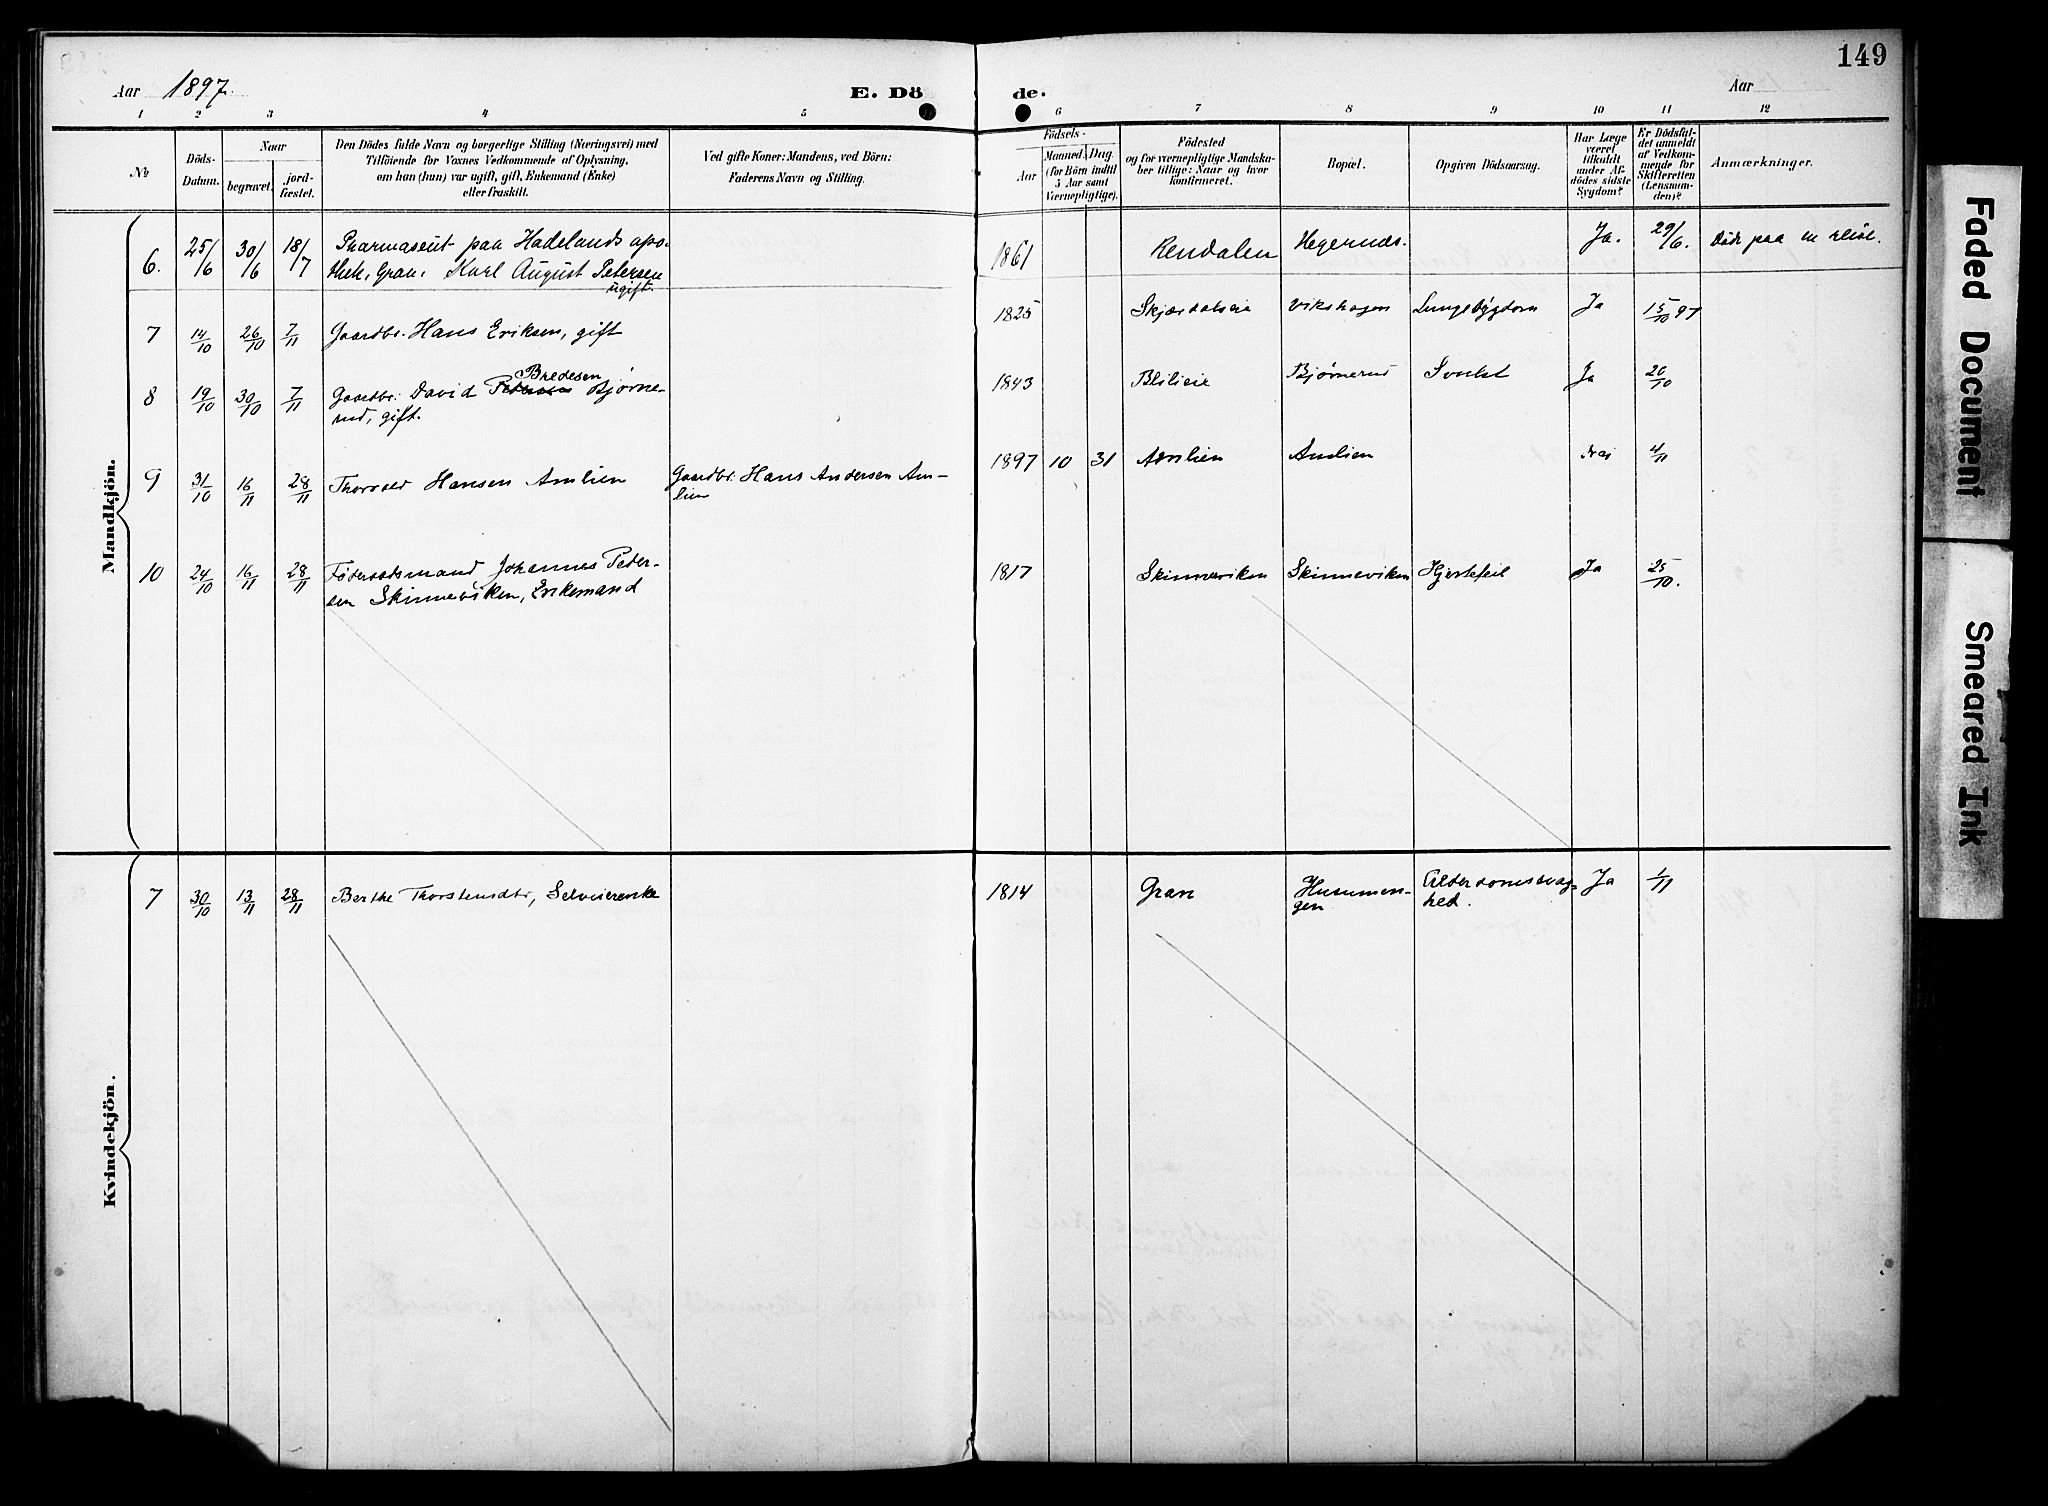 149
Aar 1897.
E. Döde.
Aar
1 2 3 4 5 6 7 8 9 10 11 12
No
Döds-Datum.
Naar
begravet.
jord-fæstet.
Den Dödes fulde Navn og borgerlige Stilling (Næringsvei) med
Tilföiende for Voxnes Vedkommende af Oplysning,
om han (hun) var ugift, gift, Enkemand (Enke)
eller fraskilt.
Ved gifte Koner: Mandens, ved Börn:
Faderens Navn og Stilling.
Födsels-
Aar
Maaned Dag
(for Börn indtil
5 Aar samt
Værnepligtige).
Födested
og for værnepligtige Mandska-
ber tillige: Naar og hvor
konfirmeret.
Bopæl.
Opgiven Dödsaarsag.
Har Læge
været
tilkaldt
under Af-
dödes sidste
Sygdom?
Er Dödsfal-
det anmeldt
af Vedkom-
mende for
Skifteretten
(Lensman-
den)?
Anmærkninger.
Mandkjön.
6. 25/6 30/6 18/7 Pharmaseut paa Hadelands apo-
thek, Gran, Karl August Petersen
ugift. 1861 Rendalen Hegernæs. Ja. 29/6. Døde paa en reise.
7 14/10 26/10 7/11 Gaardbr. Hans Eriksen, gift 1825 Skjærdalseie Vikshagen Lungebygdom Ja 15/10 97
8 19/10 30/10 7/11 Gaardbr. David Bredesen Bjørne-
rud, gift. 1843 Blilieie Bjørnerud Ja 20/10
9 31/10 16/11 28/11 Hansen Amlien Gaardbr. Hans Andersen Am-
lien 1897 10 31 Amlien Amlien Nei 4/11
10 24/10 16/11 28/11 Føderaadsmand Johannes Peder-
sen Skinneviken, Enkemand 1817 Skinneviken Skinneviken Hjertefeil Ja 25/10.
Kvindekjön.
7 30/10 13/11 28/11 Berthe Thorstensdtr, Selveierenke 1814 Gran Alderdomssvag-
hed. Ja 1/11
Faded Document
Smeared Ink